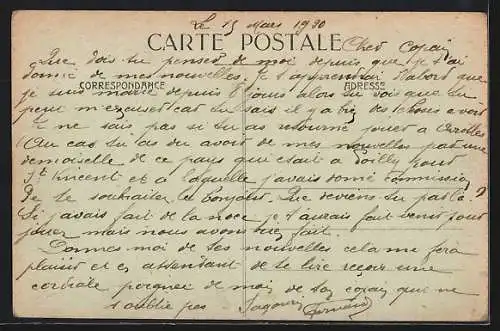 Le 15 Mars 1930
CARTE POSTALE
Cher Copain
Que dois tu penser de moi depuis que je t'ai
donné de mes nouvelles. Je t'apprendrai d'abord que
CORRESPONDANCE
ADRESSE
je suis marié depuis 8 jours alors tu vois que tu
peux m'excuser car tu sais il y a bien des choses a voir
Je ne sais pas si tu as retourné jouer a
Au cas tu as du avoir de mes nouvelles par une
demoiselle de ce pays qui etait a pour
St Vincent et a laquelle j'avais donné commission
De te souhaiter le bonjour. Que deviens tu par là ?
Si j'avais fait de la noce je t'aurais fait venir pour
jouer mais nous avons rien fait.
Donnes moi de tes nouvelles cela me fera
plaisir et en attendant de te lire reçoir une
cordiale poignee de main de ton copain qui ne
t'oublie pas